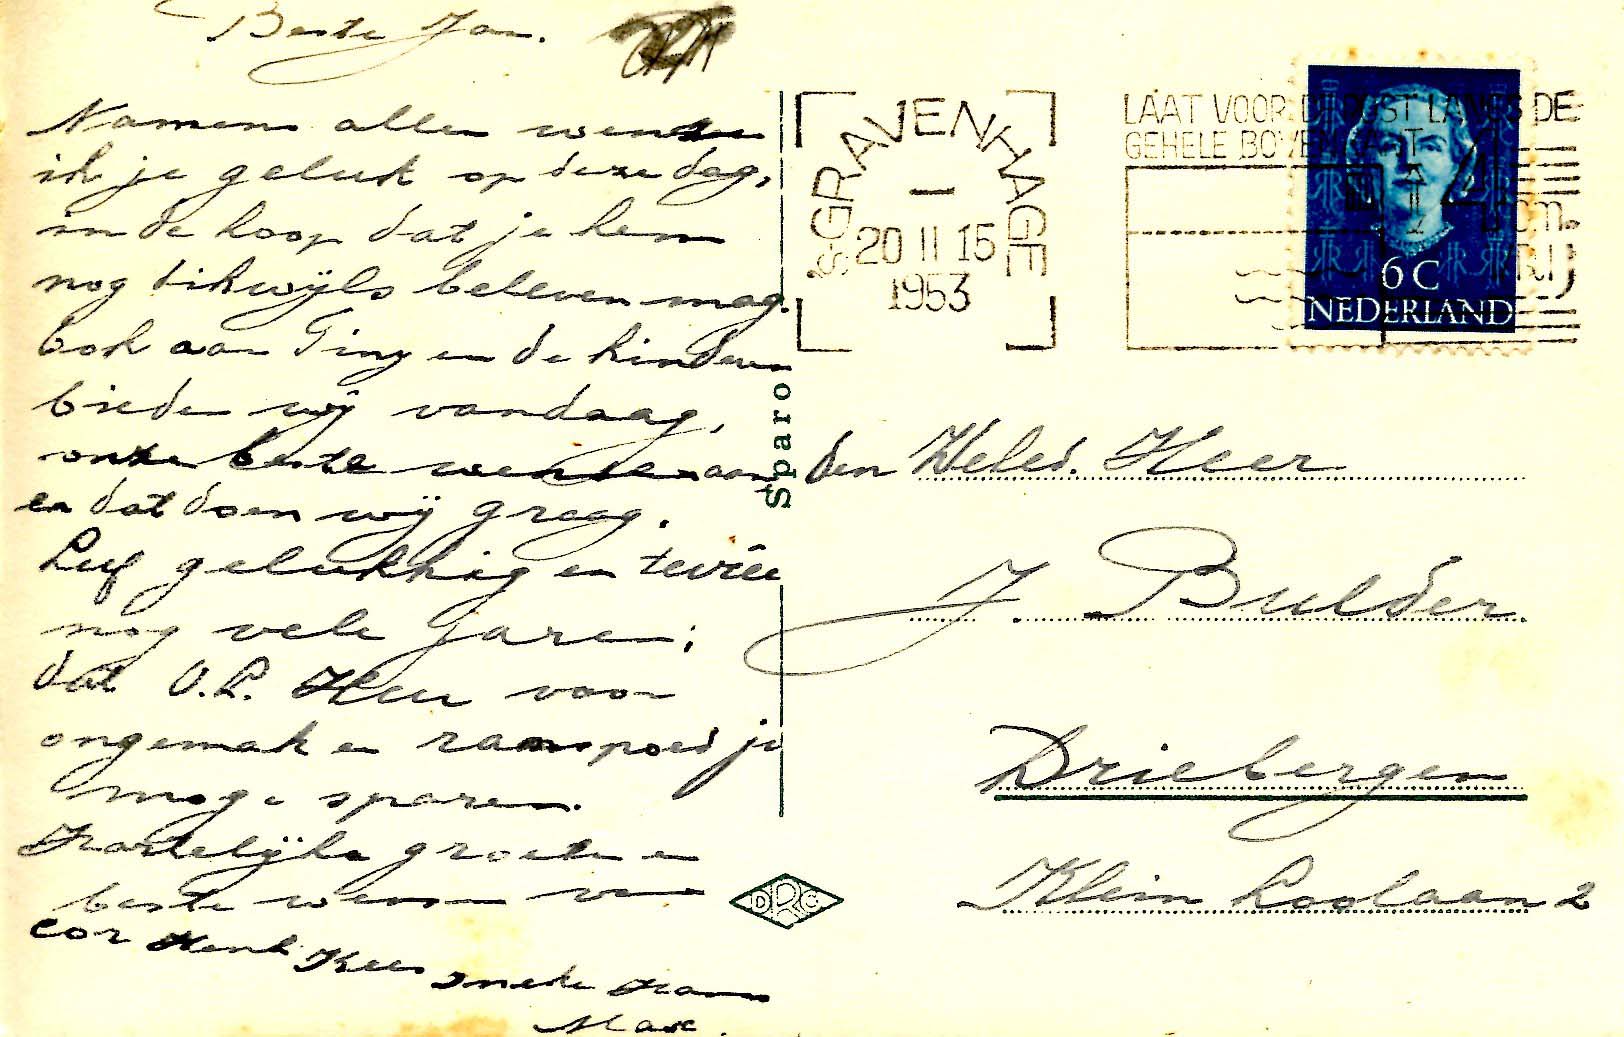 Beste Jan.
Namens allen wensen
ik je geluk op deze dag,
in de hoop dat je hem
nog dikwijls beleven mag.
Ook aan Tiny en de kinderen
bieden wij vandaag,
onze beste wensen aan
en dat doen wij graag.
Leef gelukkig en tevree
nog vele jaren;
dat O.L. Heer voor
ongemak en rampspoed je
moge sparen.
Hartelijke groeten en
beste wensen van
Cor Henk Kees Ineke Hans
Max.
Sparo
DRC
'S-GRAVENHAGE
20 II 15
1953
LAAT VOOR DE POST LANGS DE
GEHELE BOVENKANT
4 cm.
VRIJ
6 C
NEDERLAND
den Weled. Heer
J. Bulder.
Driebergen
Klein Loolaan 2